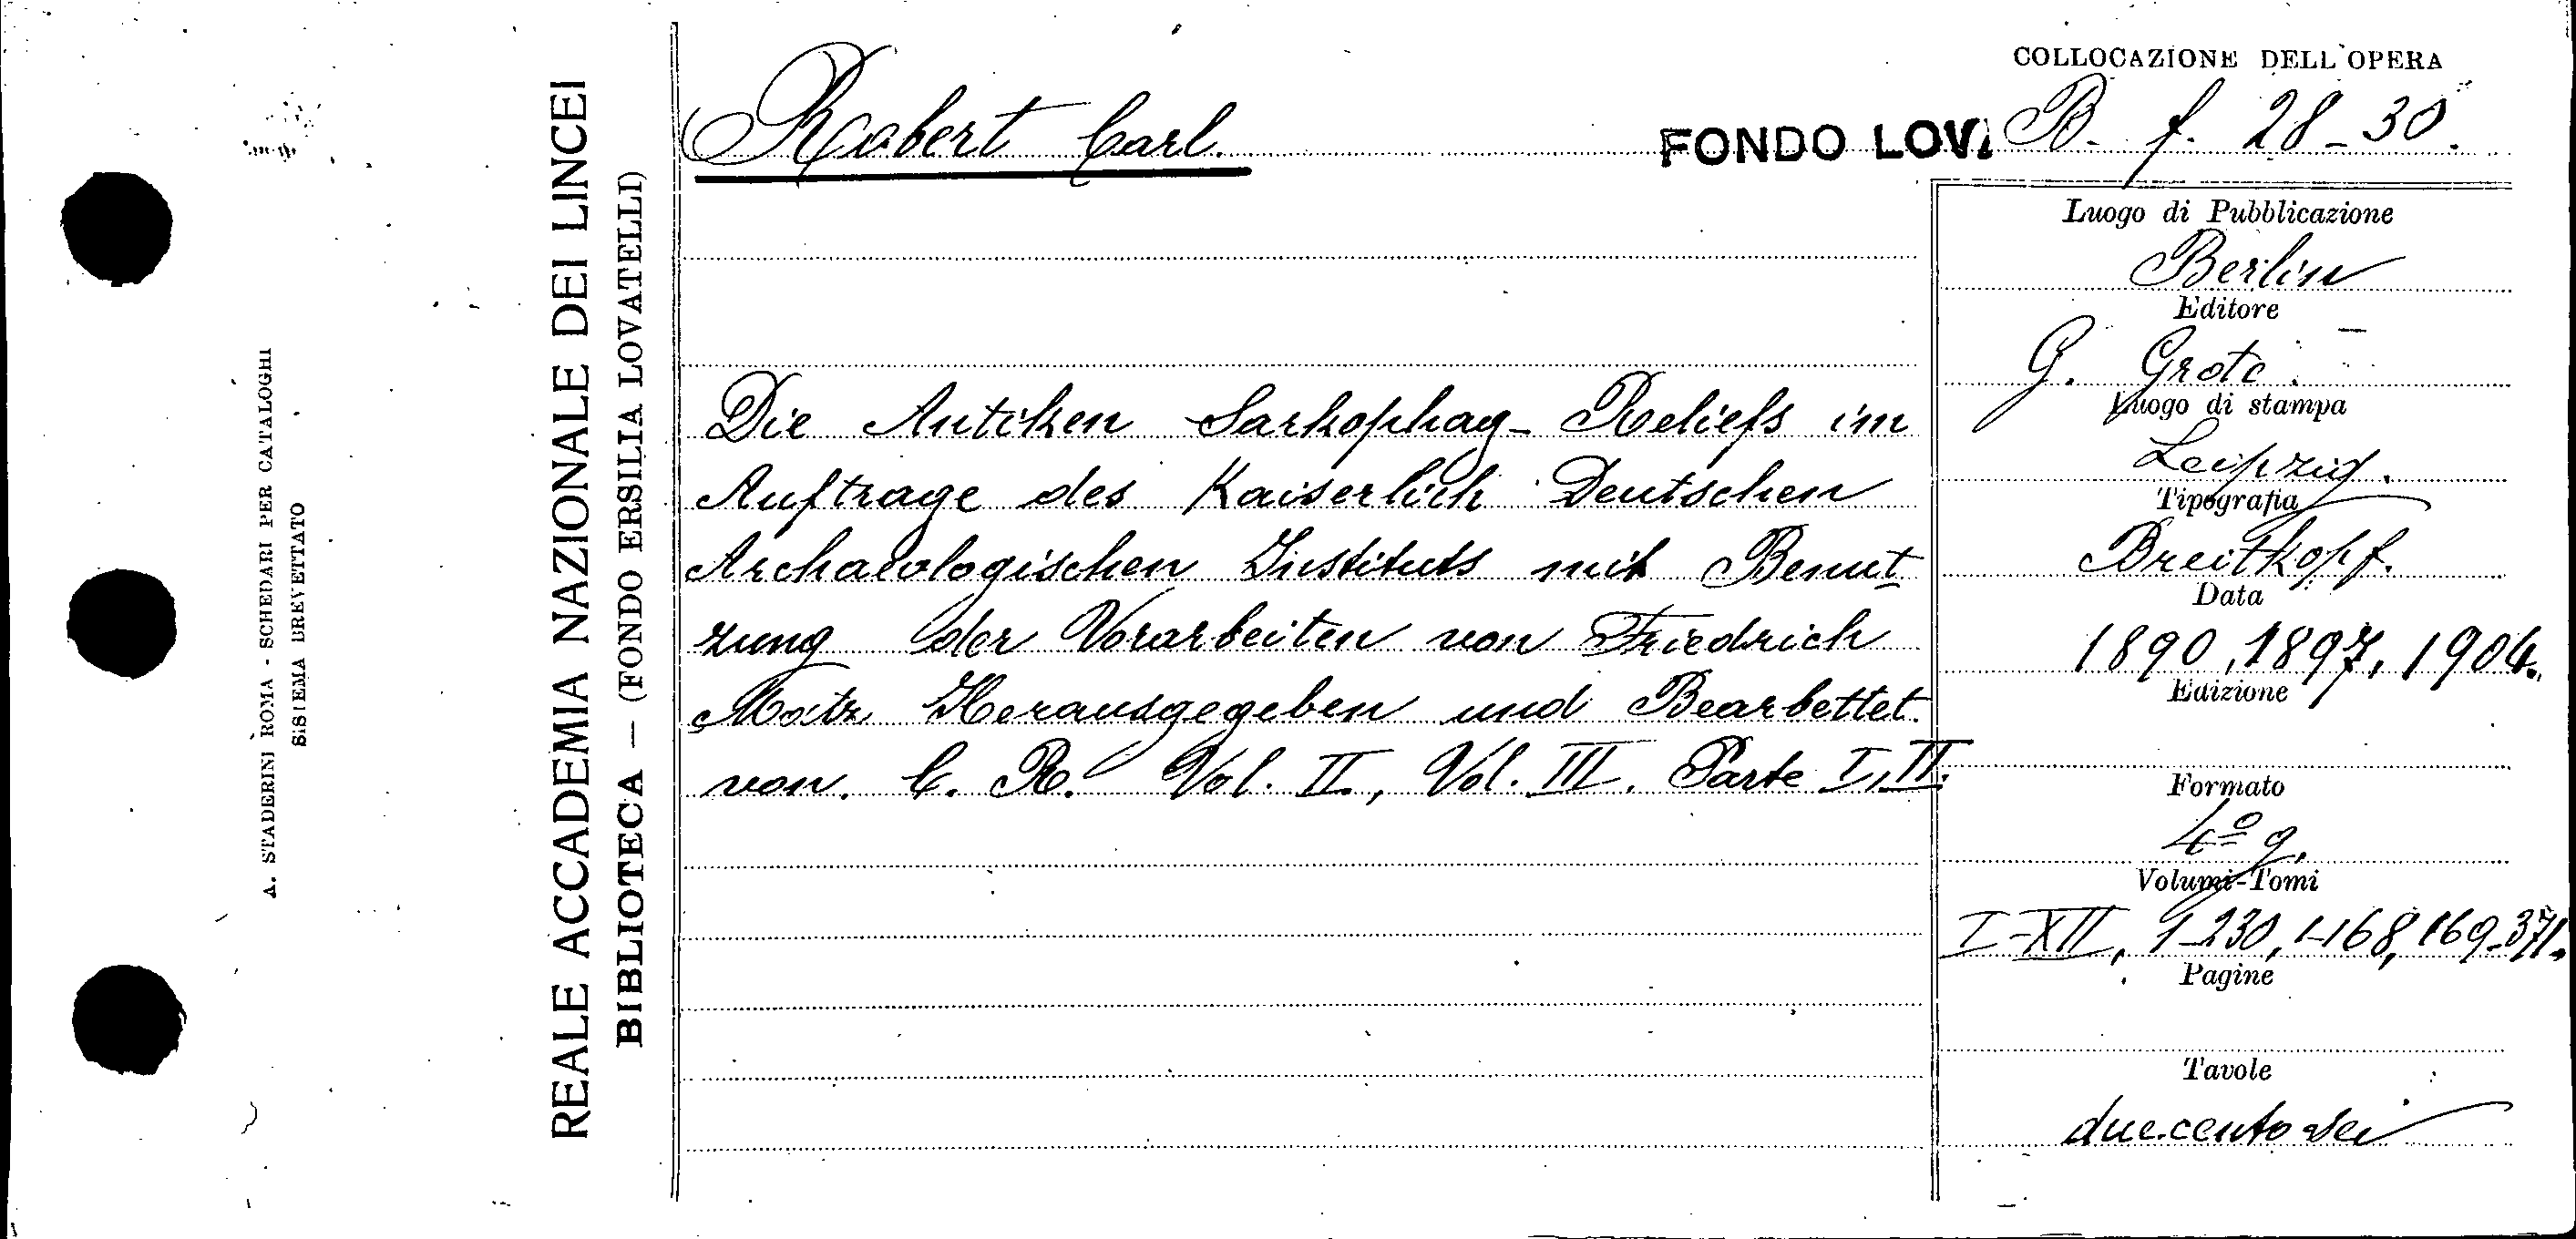 COLLOCAZIONE DELL'OPERA
Robert Carl.
FONDO LOV
B. f. 28-30.
REALE ACCADEMIA NAZIONALE DEI LINCEI
BIBLIOTECA — (FONDO ERSILIA LOVATELLI)
A. STADERINI ROMA - SCHEDARI PER CATALOGHI
SISTEMA BREVETTATO
Die Antiken Sarkophag-Reliefs im
Auftrage des Kaiserlich Deutschen
Archaeologischen Instituts mit Benut
zung der Vorarbeiten von Friedrich
Matz Herausgegeben und Bearbettet
von. C. R. Vol. II, Vol. III. Parte I, II.
Luogo di Pubblicazione
Berlin
Editore
G. Grote.
Luogo di stampa
Leipzig.
Tipografia
Breitkopf.
Data
1890, 1897, 1904.
Edizione
Formato
4º g.
Volumi-Tomi
I-XII, 1-230, 1-168, 169-371.
Pagine
Tavole
duecentosei